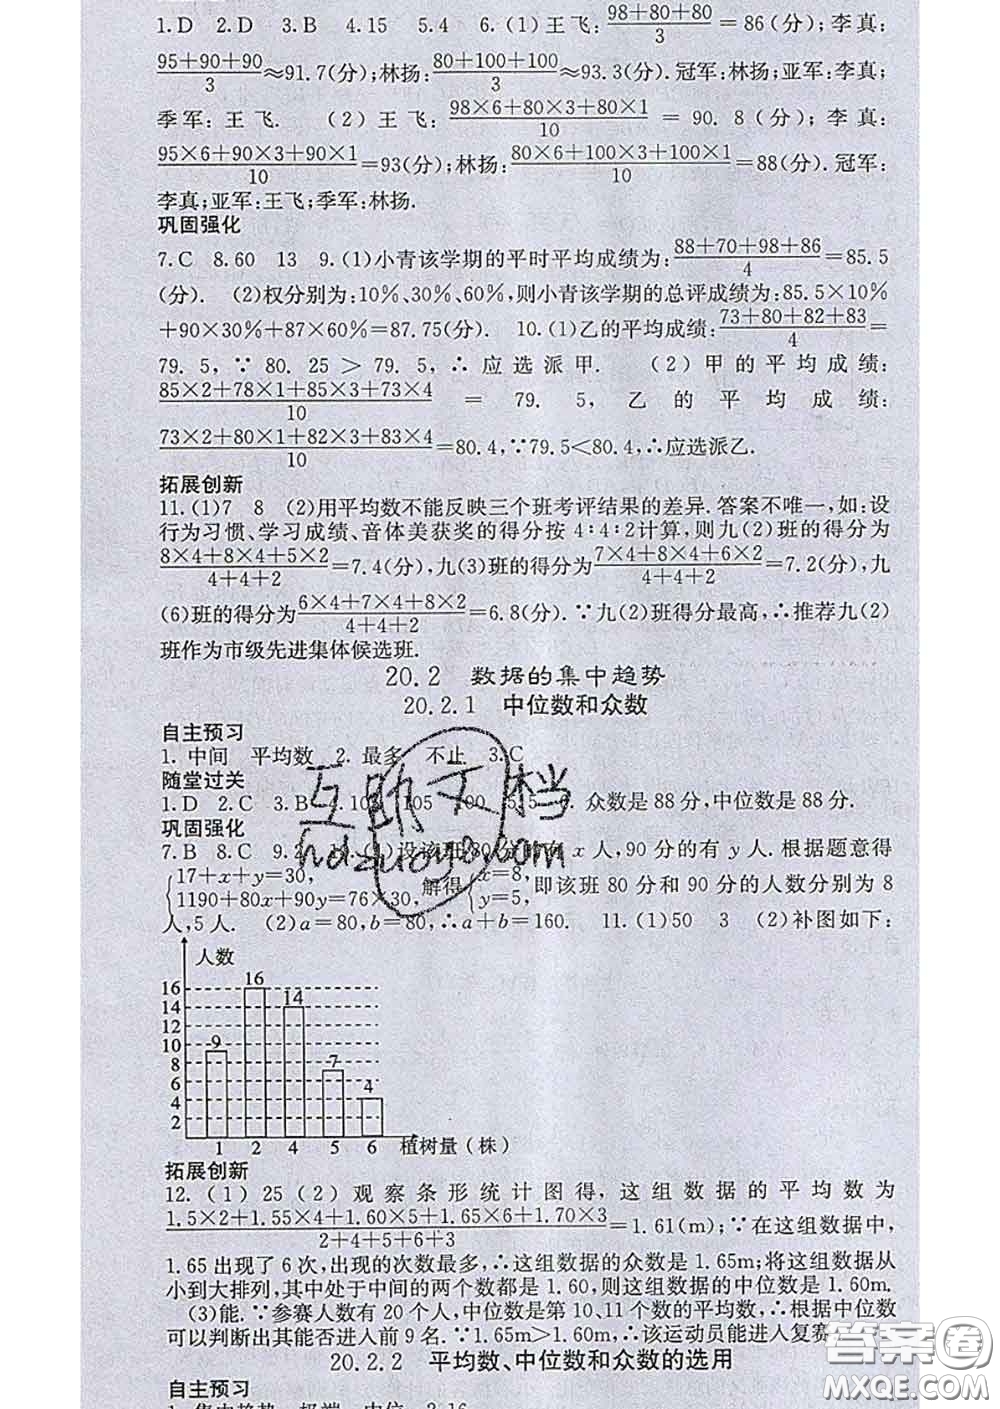 1.D 2.D 3.B 4.15 5.4 6.(1)王飞:(98+80+80)/3=86(分);李真:
(95+90+90)/3≈91.7(分);林扬:(80+100+100)/3≈93.3(分).冠军:林扬;亚军:李真;
季军:王飞. (2)王飞:(98×6+80×3+80×1)/10=90.8(分);李真:
(95×6+90×3+90×1)/10=93(分);林扬:(80×6+100×3+100×1)/10=88(分).冠军:
李真;亚军:王飞;季军:林扬.
巩固强化
7.C 8.60 13 9.(1)小青该学期的平时平均成绩为:(88+70+98+86)/4=85.5
(分). (2)权分别为:10%、30%、60%,则小青该学期的总评成绩为:85.5×10%
+90×30%+87×60%=87.75(分). 10.(1)乙的平均成绩:(73+80+82+83)/4=
79.5,∵80.25>79.5,∴应选派甲. (2)甲的平均成绩:
(85×2+78×1+85×3+73×4)/10=79.5,乙的平均成绩:
(73×2+80×1+82×3+83×4)/10=80.4,∵79.5<80.4,∴应选派乙.
拓展创新
11.(1)7 8 (2)用平均数不能反映三个班考评结果的差异.答案不唯一,如:设
行为习惯、学习成绩、音体美获奖的得分按4:4:2计算,则九(2)班的得分为
(8×4+8×4+5×2)/(4+4+2)=7.4(分),九(3)班的得分为(7×4+8×4+6×2)/(4+4+2)=7.2(分),九
(6)班的得分为(6×4+7×4+8×2)/(4+4+2)=6.8(分).∵九(2)班得分最高,∴推荐九(2)
班作为市级先进集体候选班.
20.2 数据的集中趋势
20.2.1 中位数和众数
自主预习
1.中间 平均数 2.最多 不止 3.C
随堂过关
1.D 2.C 3.B 105 5.5 众数是88分,中位数是88分.
巩固强化
7.B 8.C 9.2 (1)设该班80分的有x人,90分的有y人.根据题意得
{17+x+y=30, 1190+80x+90y=76×30, 解得{x=8, y=5, 即该班80分和90分的人数分别为8
人,5人. (2)a=80,b=80,∴a+b=160. 11.(1)50 3 (2)补图如下:
人数
16
14
12
10
8
6
4
2
9
16
14
7
4
1 2 4 5 6 植树量(株)
拓展创新
12.(1)25(2)观察条形统计图得,这组数据的平均数为
(1.5×2+1.55×4+1.60×5+1.65×6+1.70×3)/(2+4+5+6+3)=1.61(m);∵在这组数据中,
1.65出现了6次,出现的次数最多,∴这组数据的众数是1.65m;将这组数据从
小到大排列,其中处于中间的两个数都是1.60,则这组数据的中位数是1.60m.
(3)能.∵参赛人数有20个人,中位数是第10、11个数的平均数,∴根据中位数
可以判断出其能否进入前9名.∵1.65m>1.60m,∴该运动员能进入复赛
20.2.2 平均数、中位数和众数的选用
自主预习
互助文档
hdzuoye.com
答案圈
MXQE.COM